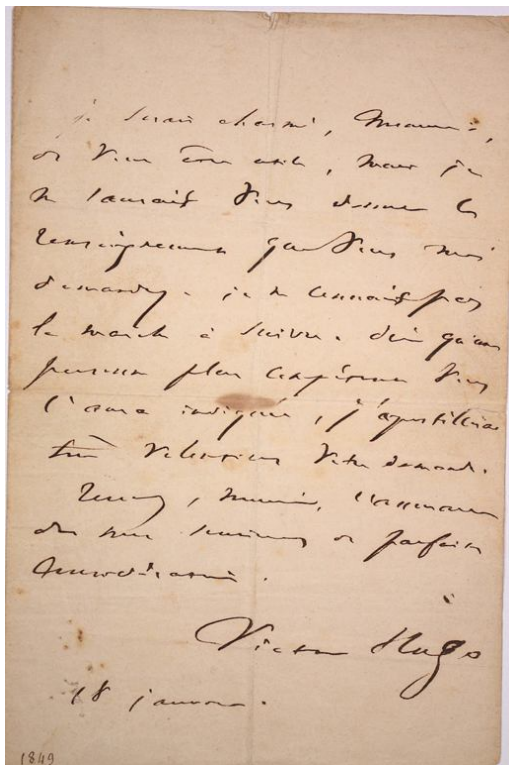 je serais charmé, Monsieur,
de vous être utile, mais je
ne saurais vous donner les
renseignements que vous me
demandez. je ne connais pas
la marche à suivre. dès qu'une
personne plus compétente vous
l'aura indiquée, j'apostillerai
très volontiers votre demande.
Recevez, Monsieur, l'assurance
de mes sentiments de parfaite
considération.
Victor Hugo
18 janvier.
1849